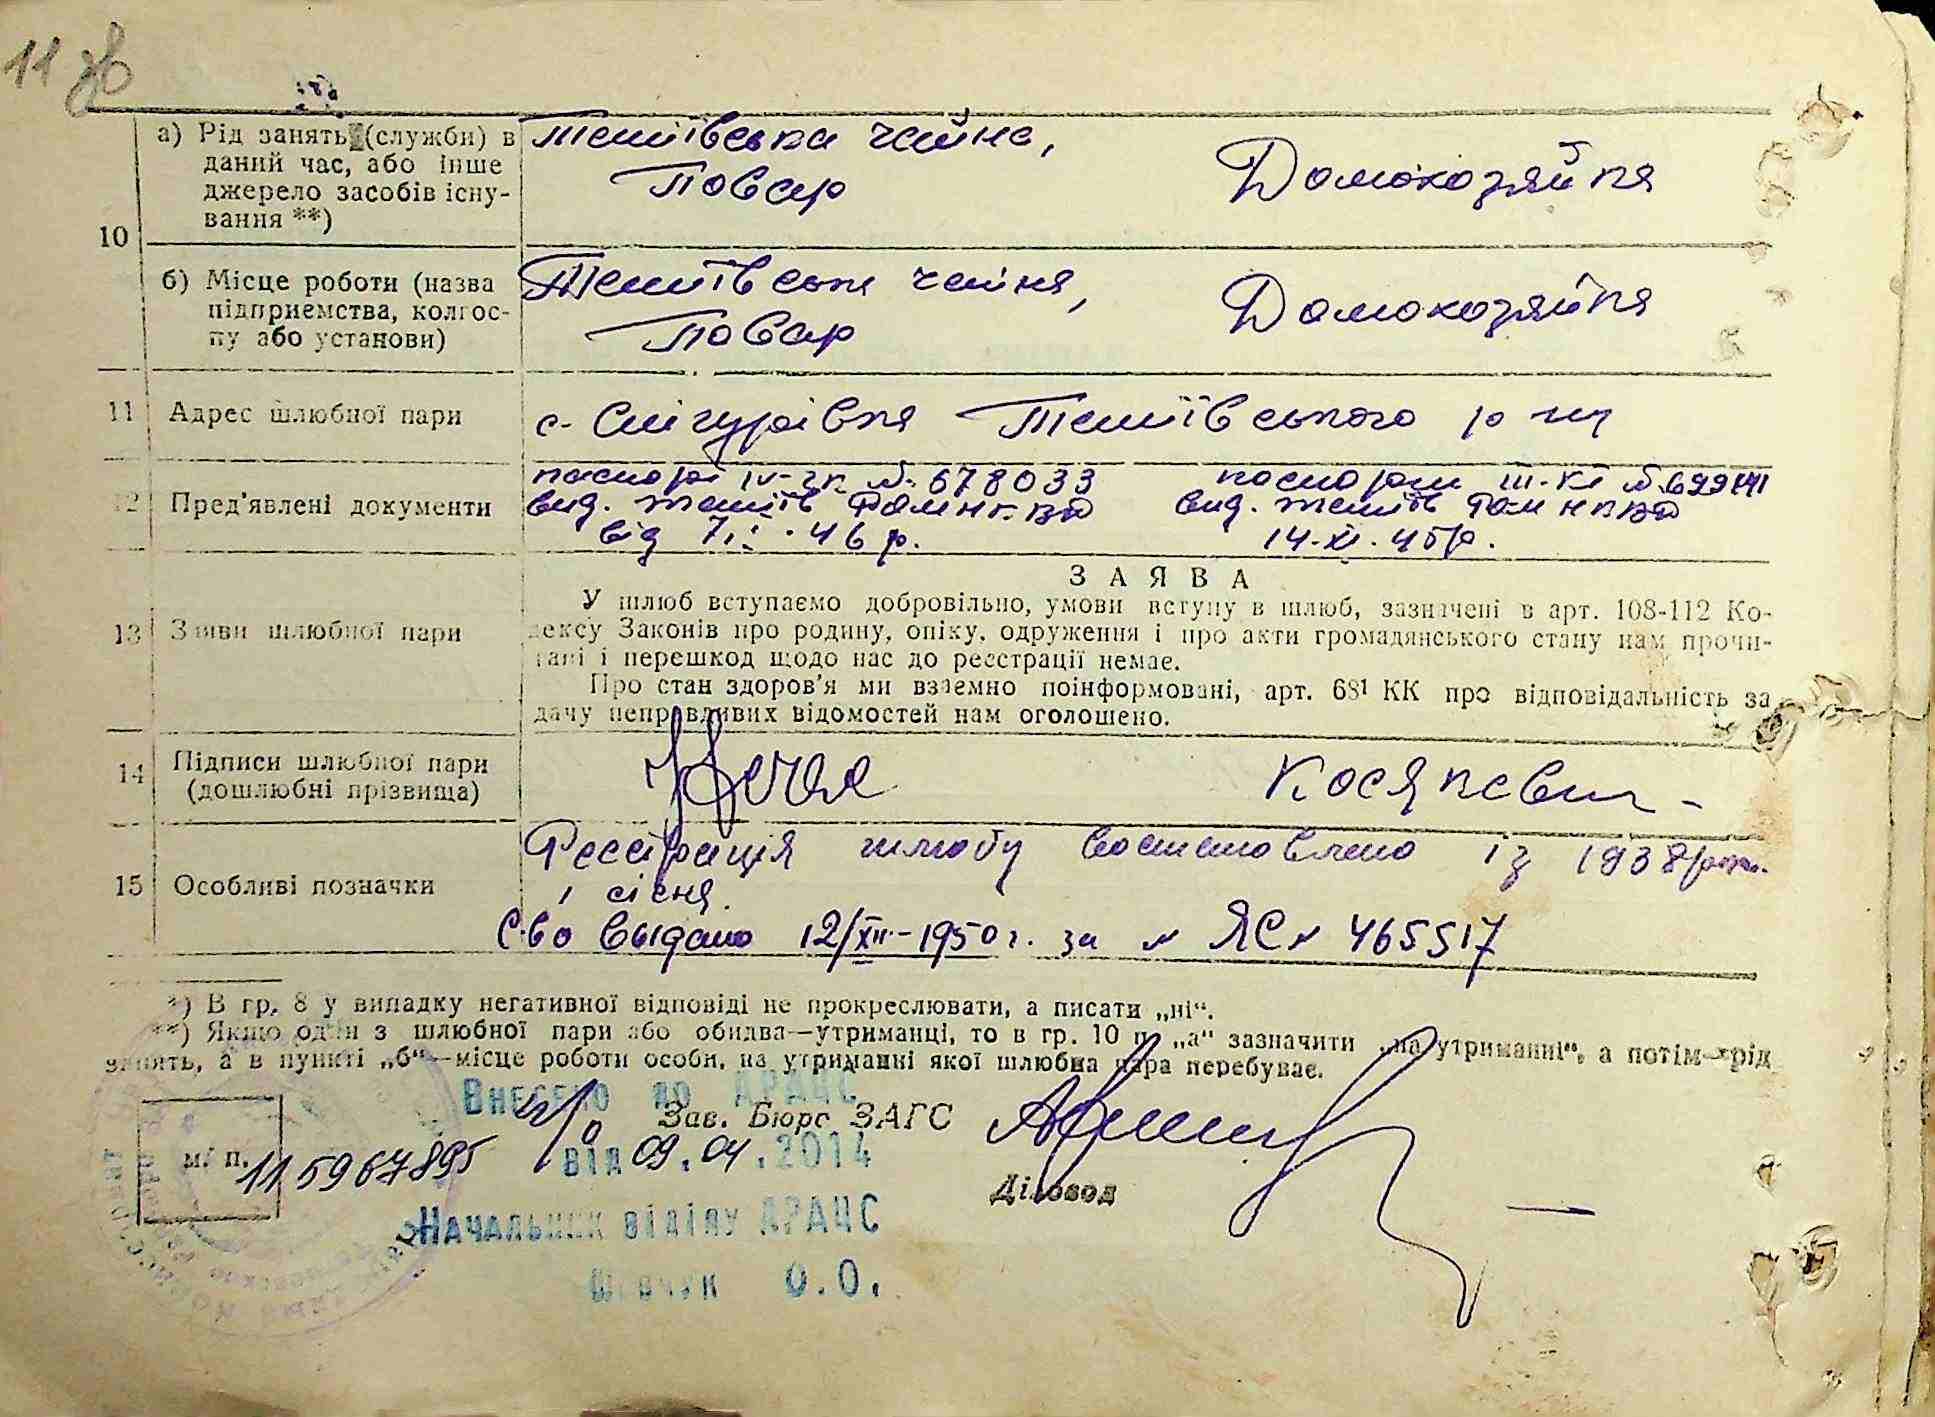 11 зв
10
а) Рід занять (служби) в
даний час, або інше
джерело засобів існу-
вання **)
Тетіївська чайна,
Повар
Домохозяйка
б) Місце роботи (назва
підприємства, колгос-
пу або установи)
Тетіївська чайна,
Повар
Домохозяйка
11 Адрес шлюбної пари
с. Снігурівка Тетіївського р-ну
12 Пред'явлені документи
паспорт № 678033
вид. Тетіїв
від 46 р.
паспорт № 699141
вид. Тетіїв
14.XI.45р.
13 Заяви шлюбної пари
ЗАЯВА
У шлюб вступаємо добровільно, умови вступу в шлюб, зазначені в арт. 108-112 Ко-
дексу Законів про родину, опіку, одруження і про акти громадянського стану нам прочи-
тані і перешкод щодо нас до реєстрації немає.
Про стан здоров'я ми взаємно поінформовані, арт. 68¹ КК про відповідальність за
дачу неправдивих відомостей нам оголошено.
14 Підписи шлюбної пари
(дошлюбні прізвища)
15 Особливі позначки
Реєстрація шлюбу восстановлено із 1938 року
1 січня.
Св-во выдано 12/XII-1950 г. за № ЯС № 465517
*) В гр. 8 у випадку негативної відповіді не прокреслювати, а писати „ні“.
**) Якщо один з шлюбної пари або обидва—утриманці, то в гр. 10 п. „а“ зазначити „на утриманні“, а потім—рід
занять, а в пункті „б“—місце роботи особи, на утриманні якої шлюбна пара перебуває.
Внесено до ДРАЦС
Зав. Бюро ЗАГС
м. п.
115967895
від 09.04.2014
Діловод —
Начальник відділу ДРАЦС
Шевчук О.О.